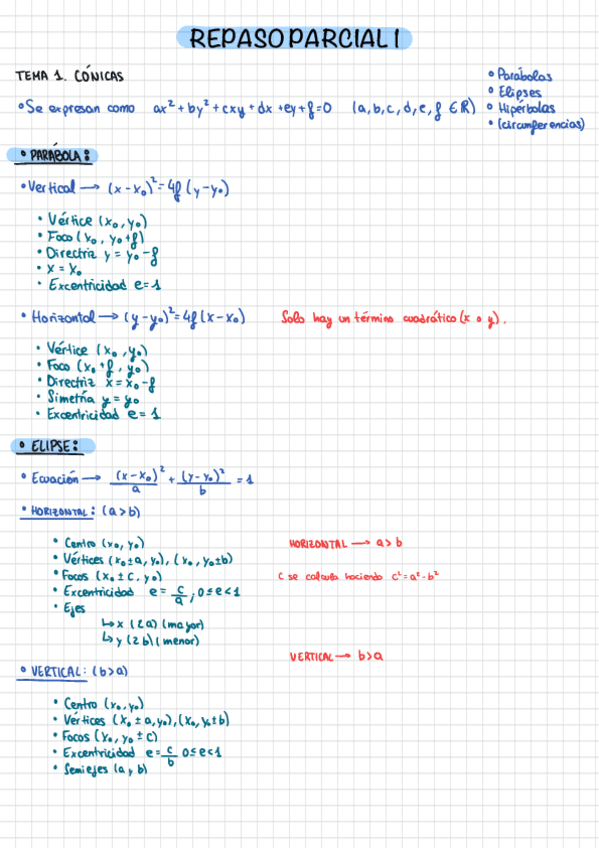 REPASO PARCIAL 1
TEMA 1. CÓNICAS
• Se expresan como ax² + by² + cxy + dx + ey + f = 0 (a, b, c, d, e, f ∈ ℝ)
• Parábolas
• Elipses
• Hipérbolas
• (circunferencias)
• PARÁBOLA:
• Vertical → (x - x₀)² = 4f (y - y₀)
• Vértice (x₀, y₀)
• Foco (x₀, y₀ + f)
• Directriz y = y₀ - f
• x = x₀
• Excentricidad e = 1
• Horizontal → (y - y₀)² = 4f (x - x₀)
Solo hay un término cuadrático (x o y).
• Vértice (x₀, y₀)
• Foco (x₀ + f, y₀)
• Directriz x = x₀ - f
• Simetría y = y₀
• Excentricidad e = 1
• ELIPSE:
• Ecuación → (x - x₀)²/a + (y - y₀)²/b = 1
• HORIZONTAL: (a > b)
• Centro (x₀, y₀)
• Vértices (x₀ ± a, y₀), (x₀, y₀ ± b)
• Focos (x₀ ± c, y₀)
• Excentricidad e = c/a, 0 ≤ e < 1
• Ejes
↳ x (2a) (mayor)
↳ y (2b) (menor)
HORIZONTAL → a > b
C se calcula haciendo c² = a² - b²
VERTICAL → b > a
• VERTICAL: (b > a)
• Centro (x₀, y₀)
• Vértices (x₀ ± a, y₀), (x₀, y₀ ± b)
• Focos (x₀, y₀ ± c)
• Excentricidad e = c/b 0 ≤ e < 1
• Semiejes (a y b)